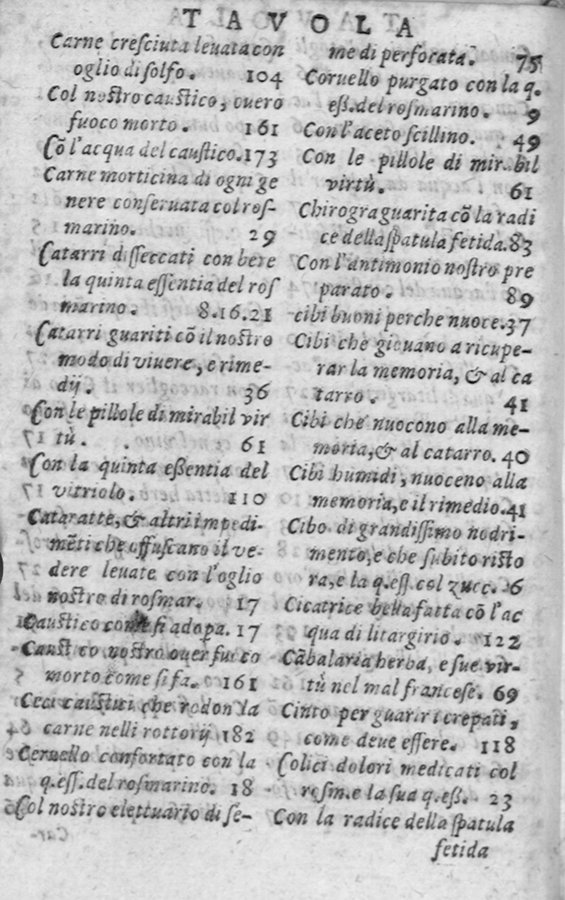 TAVOLA
Carne cresciuta leuata con
oglio di solfo. 104
Col nostro caustico, ouero
fuoco morto. 161
Cõ l'acqua del caustico. 173
Carne morticina di ogni ge
nere conseruata col ros-
marino. 29
Catarri disseccati con bere
la quinta essentia del ros
marino. 8.16.21
Catarri guariti cõ il nostro
modo di viuere, e rime-
dij. 36
Con le pillole di mirabil vir
tù. 61
Con la quinta eßentia del
vitriolo. 110
Cataratte, & altri impedi-
mẽti che offuscano il ve-
dere leuate con l'oglio
nostro di rosmar. 17
Caustico come si adopa. 17
Caustico nostro ouer fuoco
morto come si fa. 161
Ceci caustici che rodon la
carne nelli rottorij 182
Ceruello confortato con la
q.ess. del rosmarino. 18
Col nostro elettuario di se-
me di perforata. 75
Ceruello purgato con la q.
eß. del rosmarino. 9
Con l'aceto scillino. 49
Con le pillole di mirabil
virtù. 61
Chirogra guarita cõ la radi
ce della spatula fetida. 83
Con l'antimonio nostro pre
parato. 89
cibi buoni perche nuoce. 37
Cibi che giouano a ricupe-
rar la memoria, & al ca
tarro. 41
Cibi che nuocono alla me-
moria, & al catarro. 40
Cibi humidi, nuoceno alla
memoria, e il rimedio. 41
Cibo di grandissimo nodri-
mento, e che subito risto
ra, e la q.ess. col zucc. 6
Cicatrice bella fatta cõ l'ac
qua di litargirio. 122
Cãbalaria herba, e sue vir-
tù nel mal francese. 69
Cinto per guarir i crepati,
come deue essere. 118
Colici dolori medicati col
rosm. e la sua q.eß. 23
Con la radice della spatula
fetida